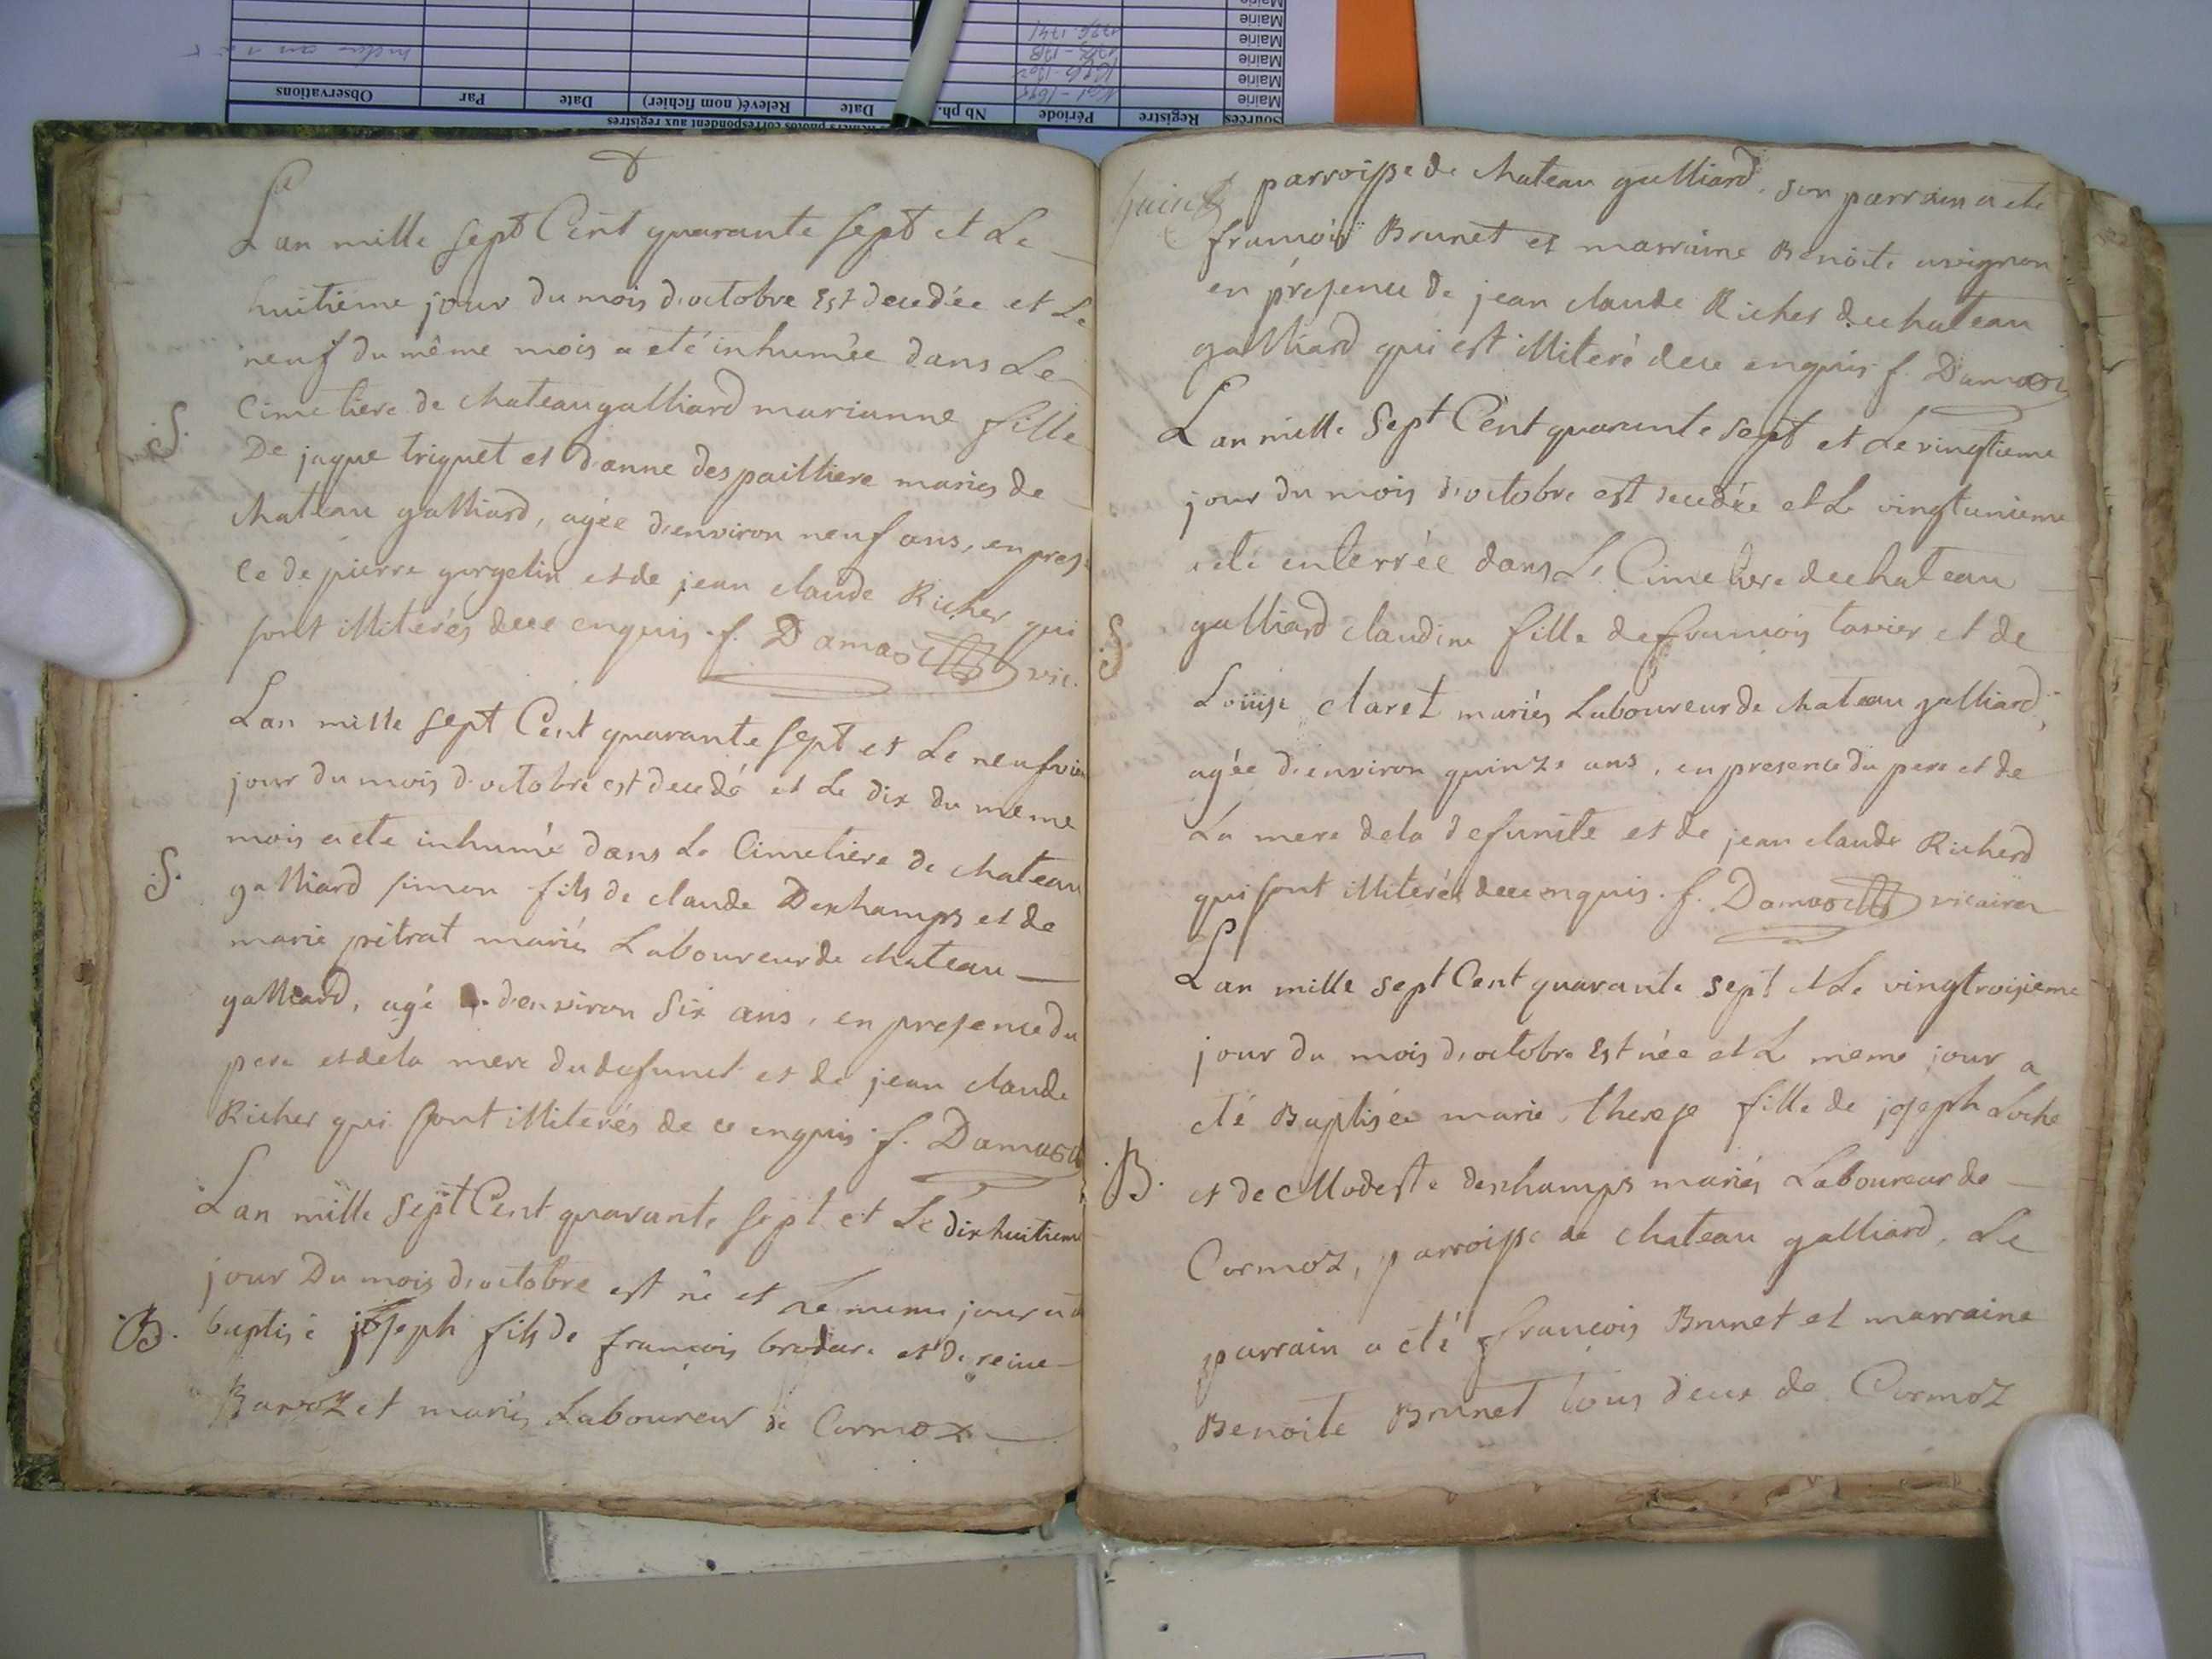 Sources Registre Période Nb ph. Date Relevé( nom fichier) Date Par Observations
Mairie
Mairie
Mairie
Mairie 1736-1741
Mairie
Lan mille sept Cent quarante sept et Le
huitième jour du mois d'octobre Est decedée et Le
neuf du même mois a eté inhumée dans Le
S. Cimetiere de chateaugalliard marianne fille
De jaque triquet et d'anne despailliere mariés de
chateau galliard, agée d'environ neuf ans, en presen
ce de pierre gorgelin et de jean claude Richer qui
sont illiterés de ce enquis. f. Damas vic.
Lan mille sept Cent quarante sept et Le neufvie
jour du mois d'octobre est decedé et Le dix du meme
mois a ete inhumé dans Le Cimetiere de chateau
S. galliard simon fils de claude Deschamps et de
marie pitrat mariés Laboureur de chateau
galliard, agé d'environ six ans, en presence du
pere et de la mere du defunct et de jean claude
Richer qui sont illiterés de ce enquis. f. Damas
Lan mille sept Cent quarante sept et Le dixhuitieme
jour Du mois d'octobre est né et Le meme jour a
B. baptisé joseph fils de françois brodare et de reine
Barozet mariés Laboureur de Cormoz
parroisse de chateau galliard. son parrain a ete
françois Brunet et marraine Benoite avignon
en présence de jean claude Richer de chateau
galliard qui est illiteré de ce enquis f. Damas
Lan mille Sept Cent quarante sept et Le vingtieme
jour du mois d'octobre est decedée et Le vingtunieme
a eté enterrée dans Le Cimetiere de chateau
S galliard claudine fille de françois tavier et de
Louise claret mariés Laboureur de chateau galliard,
agée d'environ quinze ans, en presence du pere et de
La mere de la defunite et de jean claude Richerd
qui sont illiterés de ce enquis. f. Damas vicaire
Lan mille sept Cent quarante sept et Le vingtroisieme
jour du mois d'octobre Est née et Le meme jour a
eté Baptisée marie therese fille de joseph Loche
B. et de Modeste deschamps mariés Laboureur de
Cormoz, parroisse de chateau galliard. Le
parrain a eté françois Brunet et marraine
Benoite Brunet tous deux de Cormoz